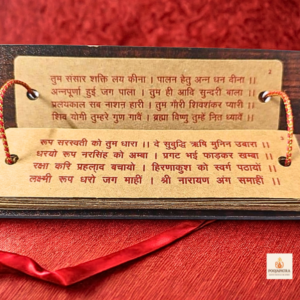 २
तुम संसार शक्ति लय कीना । पालन हेतु अन्न धन दीना ।।
अन्नपूर्णा हुई जग पाला । तुम ही आदि सुन्दरी बाला ।।
प्रलयकाल सब नाशन हारी । तुम गौरी शिवशंकर प्यारी ।।
शिव योगी तुम्हरे गुण गावें । ब्रह्मा विष्णु तुम्हें नित ध्यावें ।।
रूप सरस्वती को तुम धारा ।। दे सुबुद्धि ऋषि मुनिन उबारा ।।
धरयो रूप नरसिंह को अम्बा । प्रगट भई फाड़कर खम्बा ।।
रक्षा करि प्रहलाद बचायो । हिरणाकुश को स्वर्ग पठायो ।।
लक्ष्मी रूप धरो जग माहीं । श्री नारायण अंग समाहीं ।।